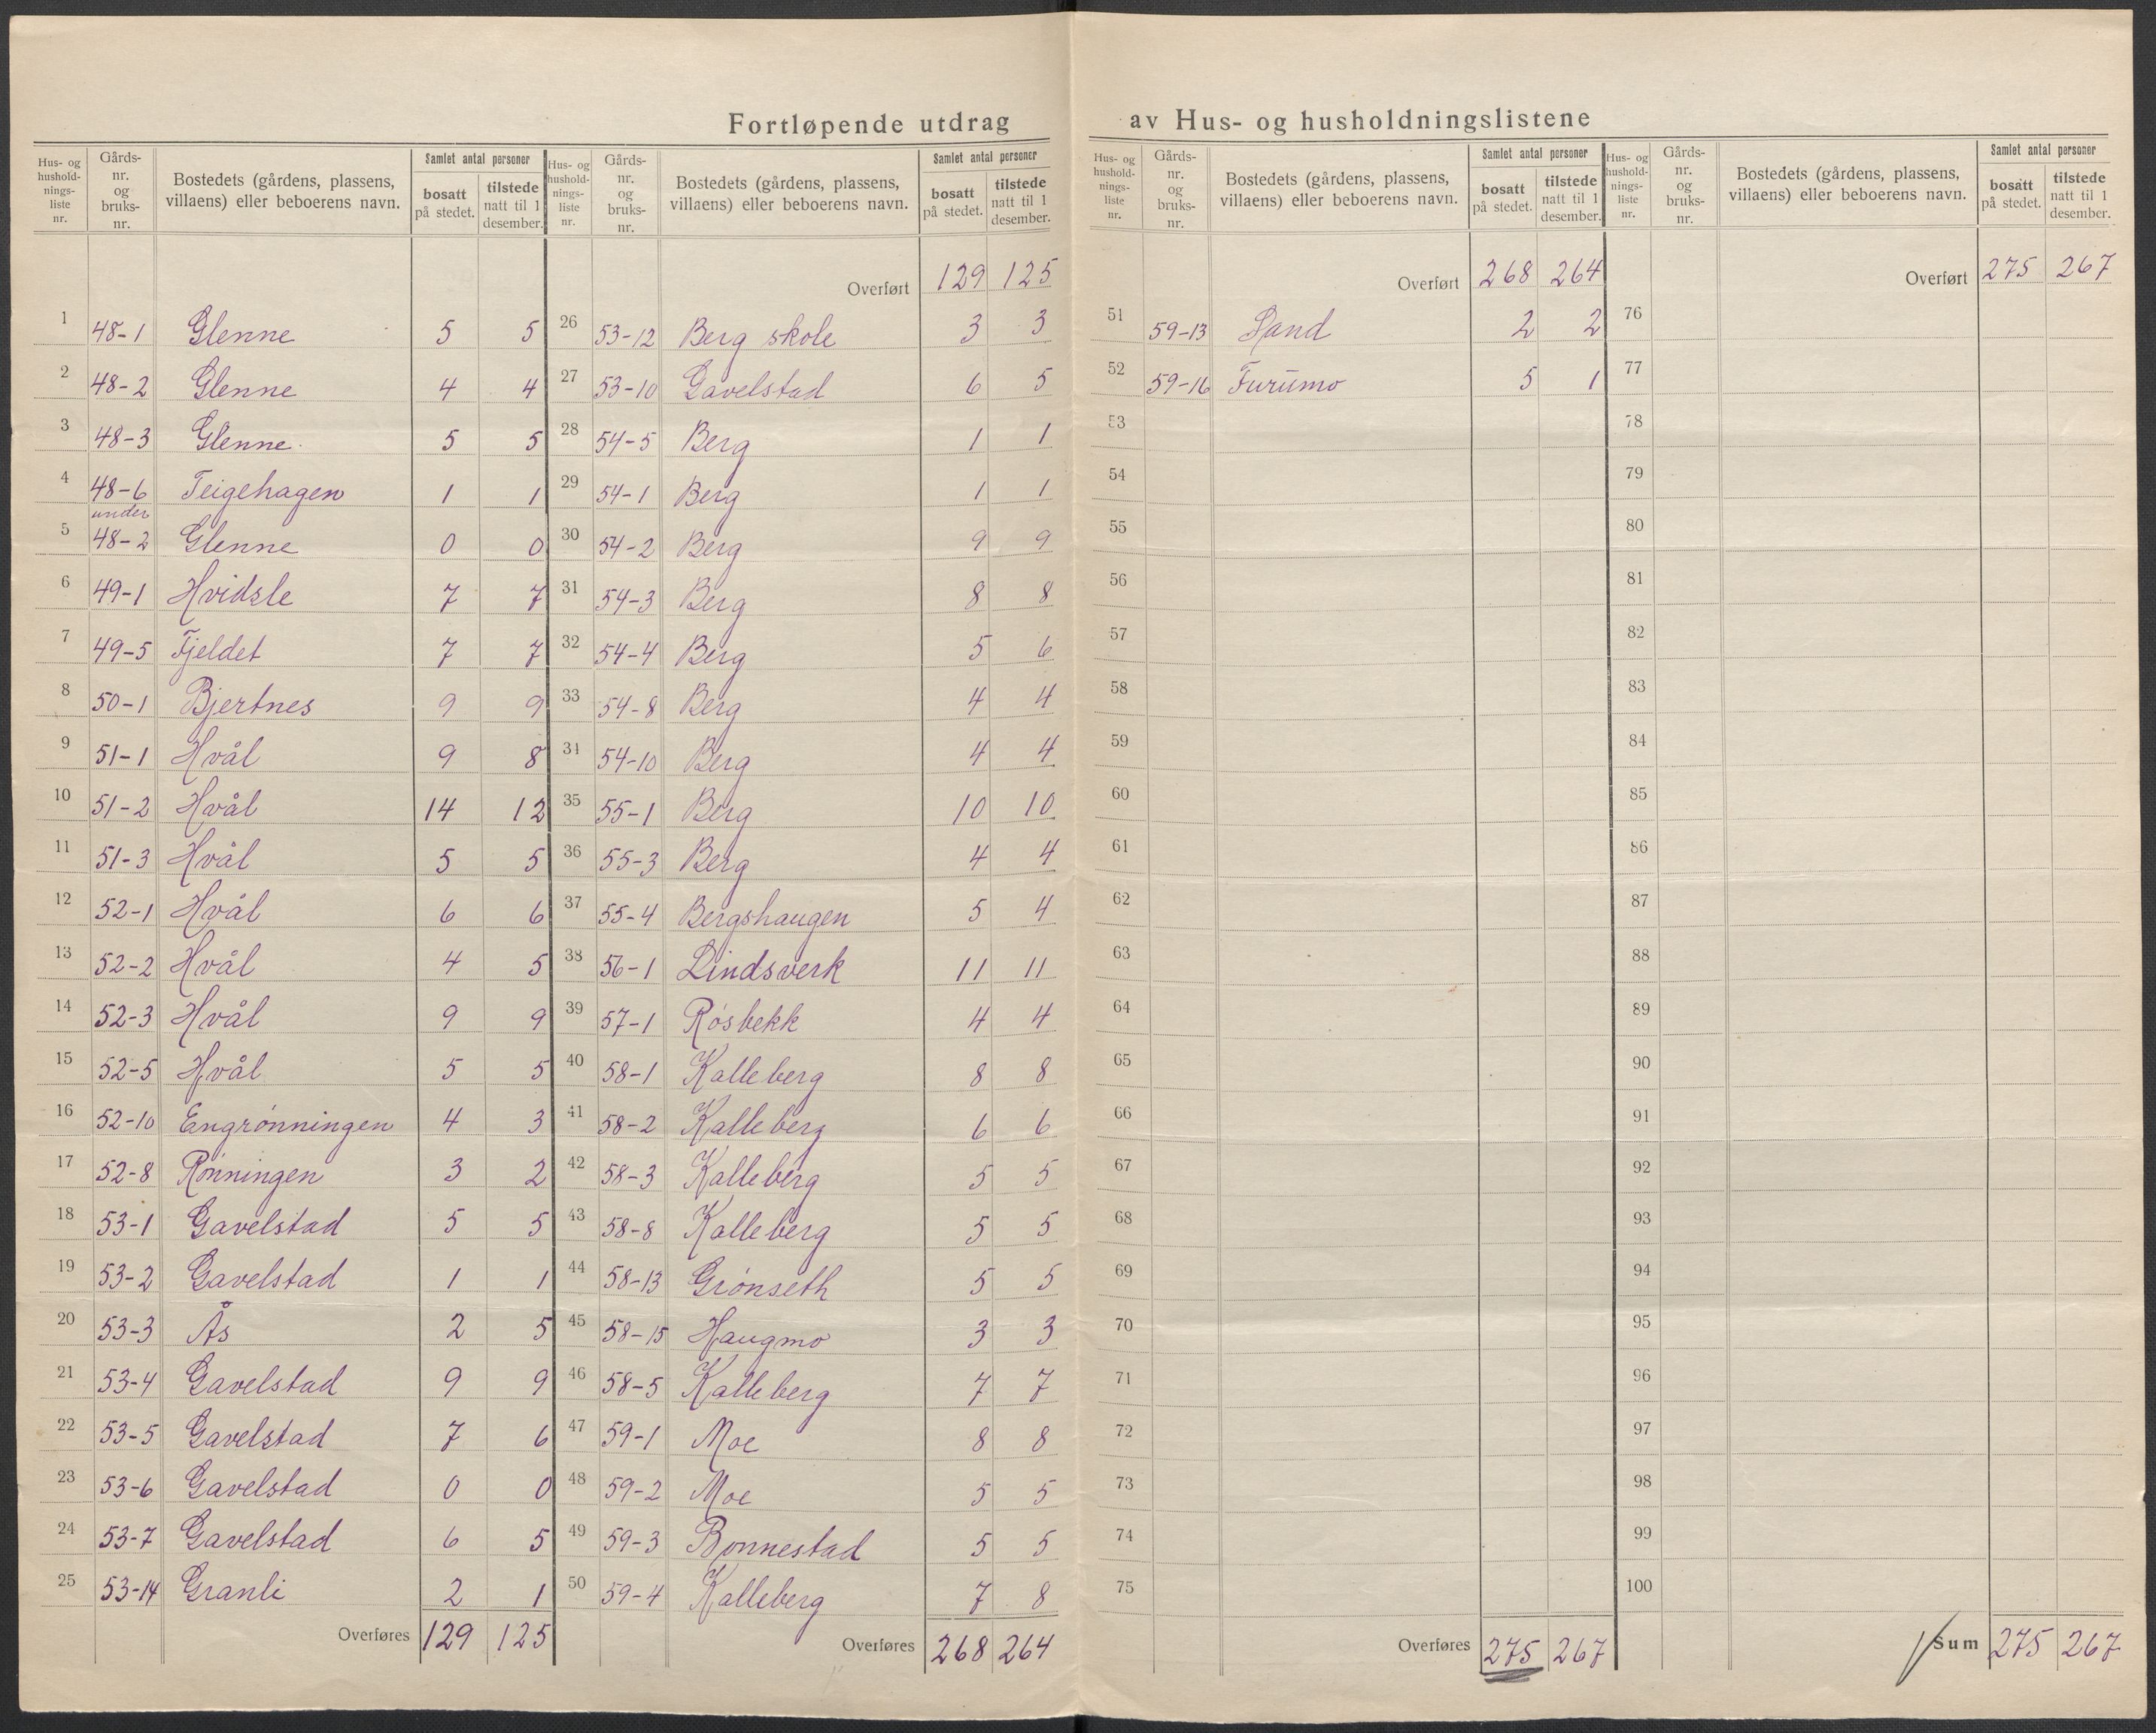 Fortløpende utdrag av Hus- og husholdningslistene
Hus- og husholdningsliste nr. | Gårds- nr. og bruks- nr. | Bostedets (gårdens, plassens, villaens) eller beboerens navn. | Samlet antal personer | bosatt på stedet. | tilstede natt til 1 desember.
1 48-1 Glenne 5 5
2 48-2 Glenne 4 4
3 48-3 Glenne 5 5
4 48-6 Teigehagen 1 1
5 under 48-2 Glenne 0 0
6 49-1 Hvidsle 7 7
7 49-5 Fjeldet 7 7
8 50-1 Bjertnes 9 9
9 51-1 Hvål 9 8
10 51-2 Hvål 14 12
11 51-3 Hvål 5 5
12 52-1 Hvål 6 6
13 52-2 Hvål 4 5
14 52-3 Hvål 9 9
15 52-5 Hvål 5 5
16 52-10 Engrønningen 4 3
17 52-8 Rønningen 3 2
18 53-1 Gavelstad 5 5
19 53-2 Gavelstad 1 1
20 53-3 Ås 2 5
21 53-4 Gavelstad 9 9
22 53-5 Gavelstad 7 6
23 53-6 Gavelstad 0 0
24 53-7 Gavelstad 6 5
25 53-14 Granli 2 1
Overføres 129 125
Hus- og husholdningsliste nr. | Gårds- nr. og bruks- nr. | Bostedets (gårdens, plassens, villaens) eller beboerens navn. | Samlet antal personer | bosatt på stedet. | tilstede natt til 1 desember.
Overført 129 125
26 53-12 Berg skole 3 3
27 53-10 Gavelstad 6 5
28 54-5 Berg 1 1
29 54-1 Berg 1 1
30 54-2 Berg 9 9
31 54-3 Berg 8 8
32 54-4 Berg 5 6
33 54-8 Berg 4 4
34 54-10 Berg 4 4
35 55-1 Berg 10 10
36 55-3 Berg 4 4
37 55-4 Bergshaugen 5 4
38 56-1 Lindsverk 11 11
39 57-1 Røsbekk 4 4
40 58-1 Kalleberg 8 8
41 58-2 Kalleberg 6 6
42 58-3 Kalleberg 5 5
43 58-8 Kalleberg 5 5
44 58-13 Grønseth 5 5
45 58-15 Haugmo 3 3
46 58-5 Kalleberg 7 7
47 59-1 Moe 8 8
48 59-2 Moe 5 5
49 59-3 Bonnestad 5 5
50 59-4 Kalleberg 7 8
Overføres 268 264
Hus- og husholdningsliste nr. | Gårds- nr. og bruks- nr. | Bostedets (gårdens, plassens, villaens) eller beboerens navn. | Samlet antal personer | bosatt på stedet. | tilstede natt til 1 desember.
Overført 268 264
51 59-13 Sand 2 2
52 59-16 Furumo 5 1
53
54
55
56
57
58
59
60
61
62
63
64
65
66
67
68
69
70
71
72
73
74
75
Overføres 275 267
Hus- og husholdningsliste nr. | Gårds- nr. og bruks- nr. | Bostedets (gårdens, plassens, villaens) eller beboerens navn. | Samlet antal personer | bosatt på stedet. | tilstede natt til 1 desember.
Overført 275 267
76
77
78
79
80
81
82
83
84
85
86
87
88
89
90
91
92
93
94
95
96
97
98
99
100
Sum 275 267